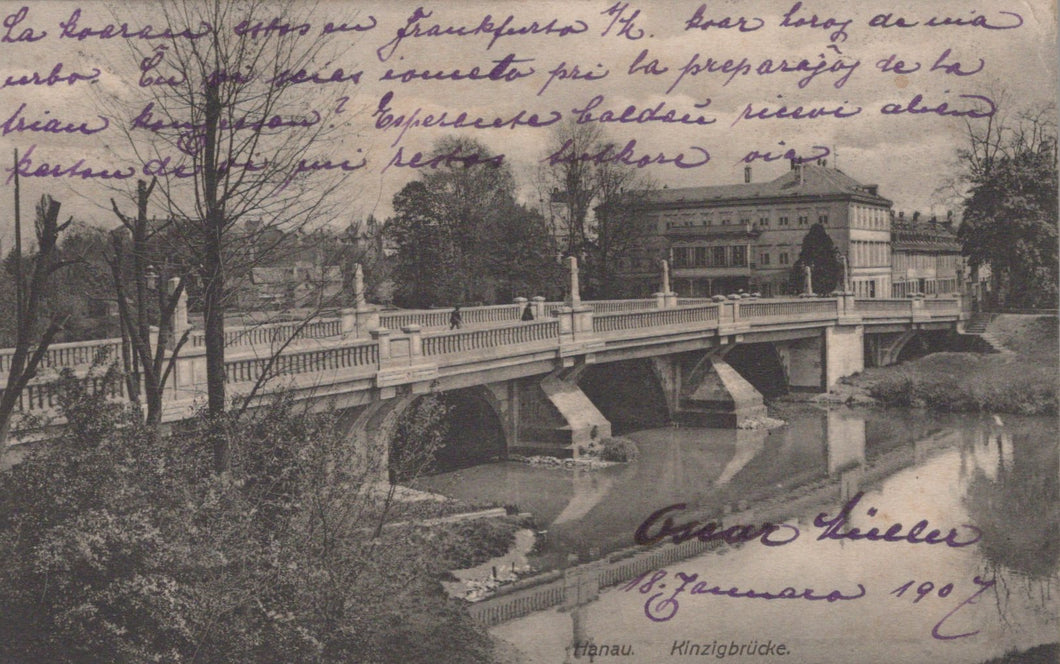 La kvaran estos en Frankfurto a/M. kvar horoj de via
urbo. Ĉu vi scias iometo pri la preparaĵoj de la
trian kongreson? Esperante baldaŭ ricevi alien
karton de vi mi restas tutkore via
Oscar Müller
18. Januaro 1907
Hanau. Kinzigbrücke.